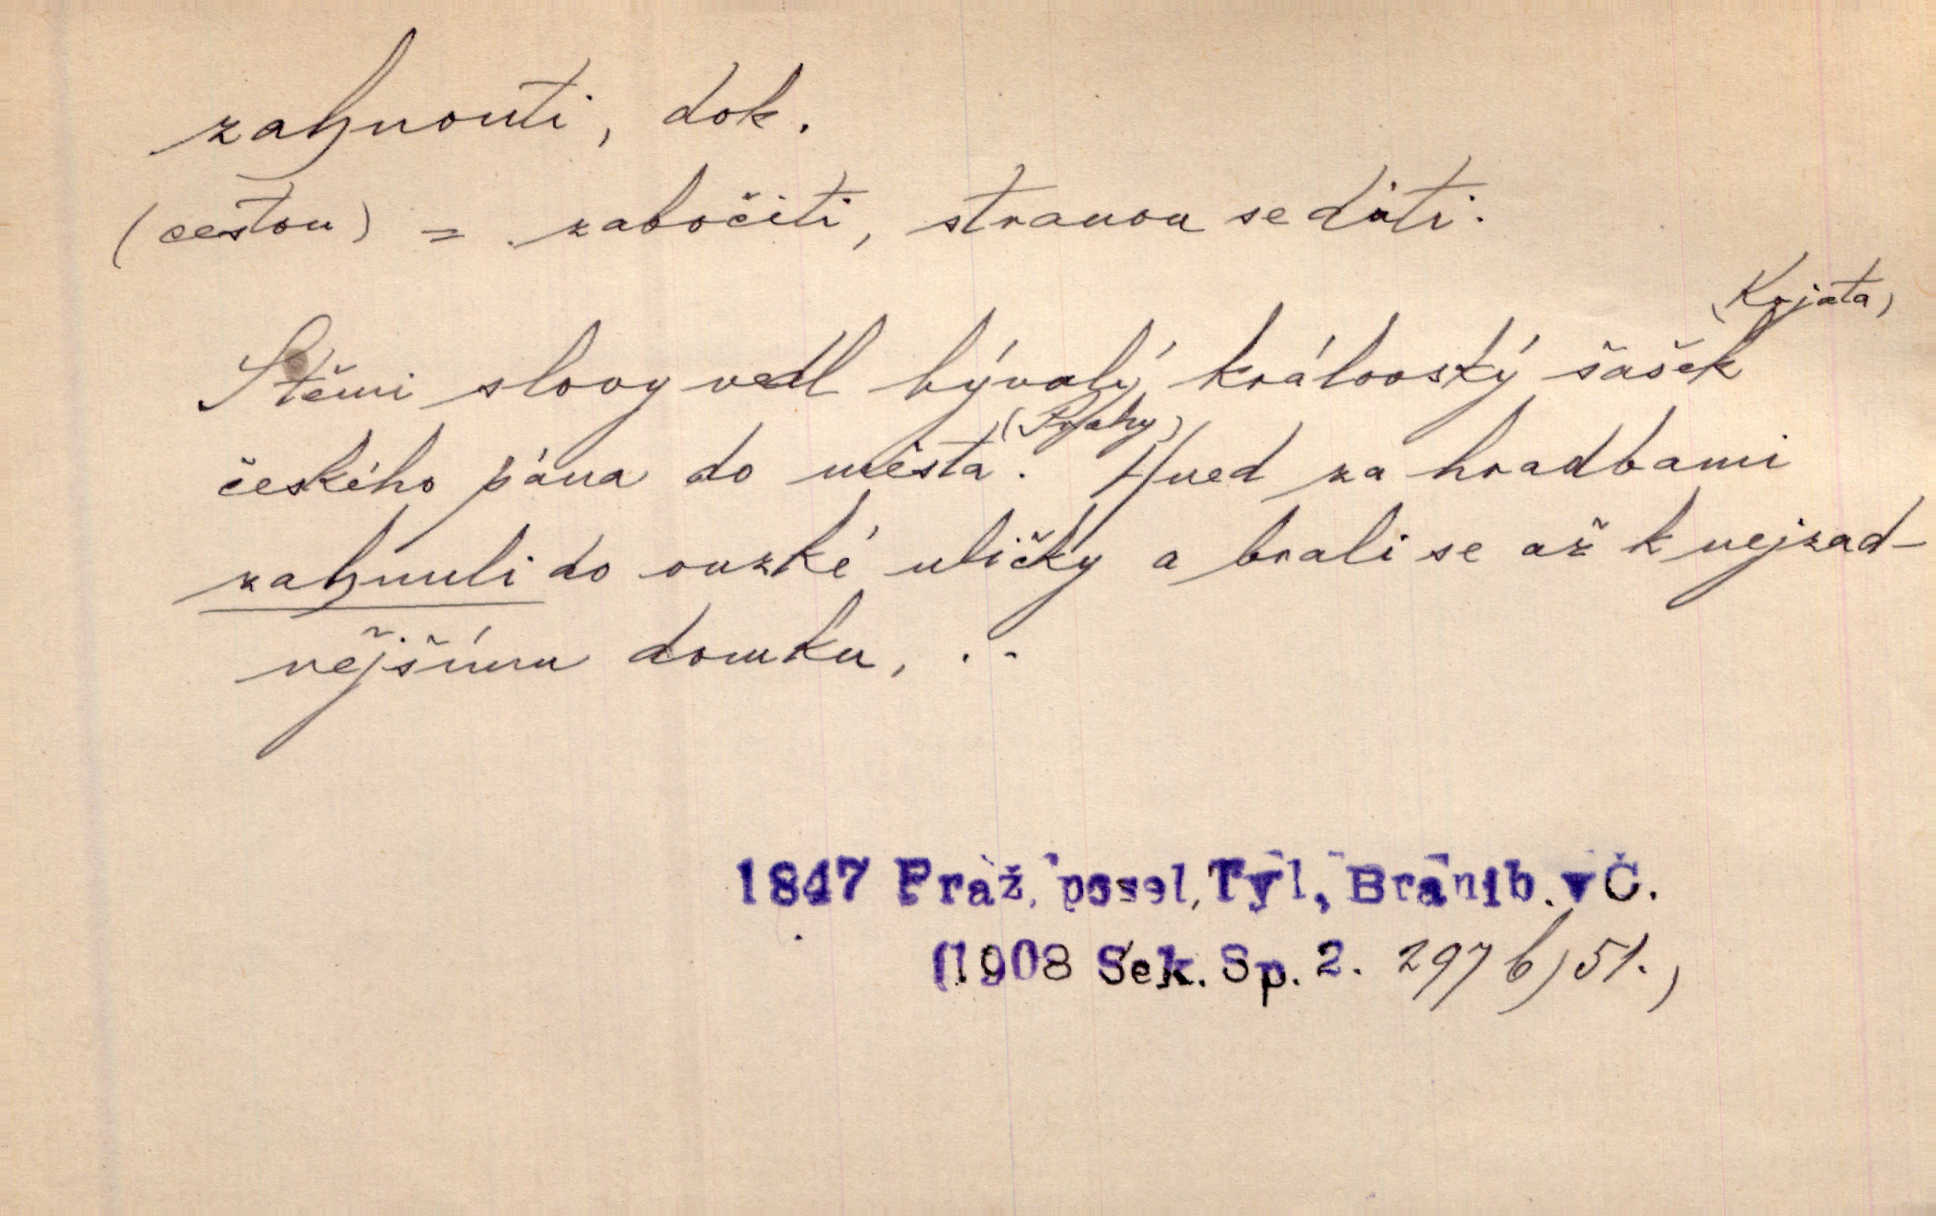 zahnouti, dok.
(cestou) = zabočiti, stranou se dáti.
(Kojata)
S těmi slovy vedl bývalý královský šašek
(Prahy)
českého pána do města. Hned za hradbami
zahnuli do ouzké uličky a brali se až k nejzad-
nějšímu domku, ..
1847 Praž. posel, Tyl, Branib. v Č.
(1908 Sek. Sp. 2. 297 b) 51.)